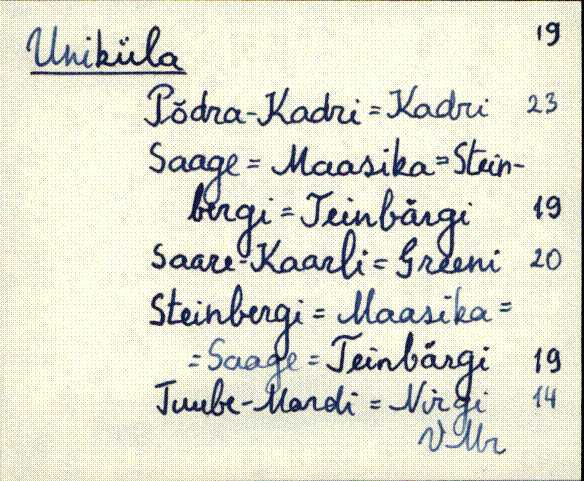 19
Uniküla
Põdra-Kadri = Kadri 23
Saage = Maasika = Stein-
bergi = Teinbärgi 19
Saare-Kaarli = Greeni 20
Steinbergi = Maasika =
= Saage = Teinbärgi 19
Tuube-Mardi = Nirgi 14
V Mr